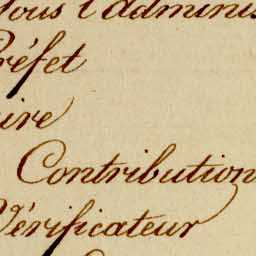 sous l'adminis
Préfet
aire
Contribution
Vérificateur